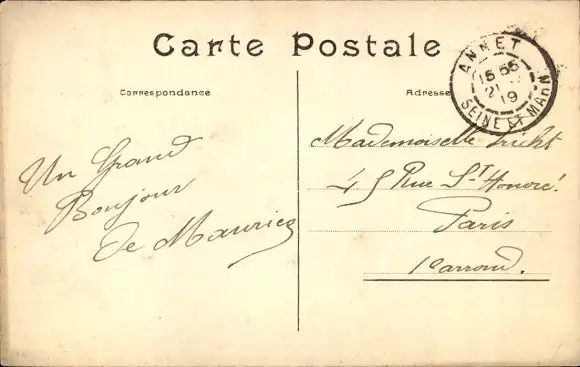 Carte Postale
Correspondance
Adresse
ANNET
15 55
21
19
SEINE ET MARN
Un Grand
Bonjour
de Maurice
Mademoiselle
45 Rue St Honoré
Paris
1e arrond.